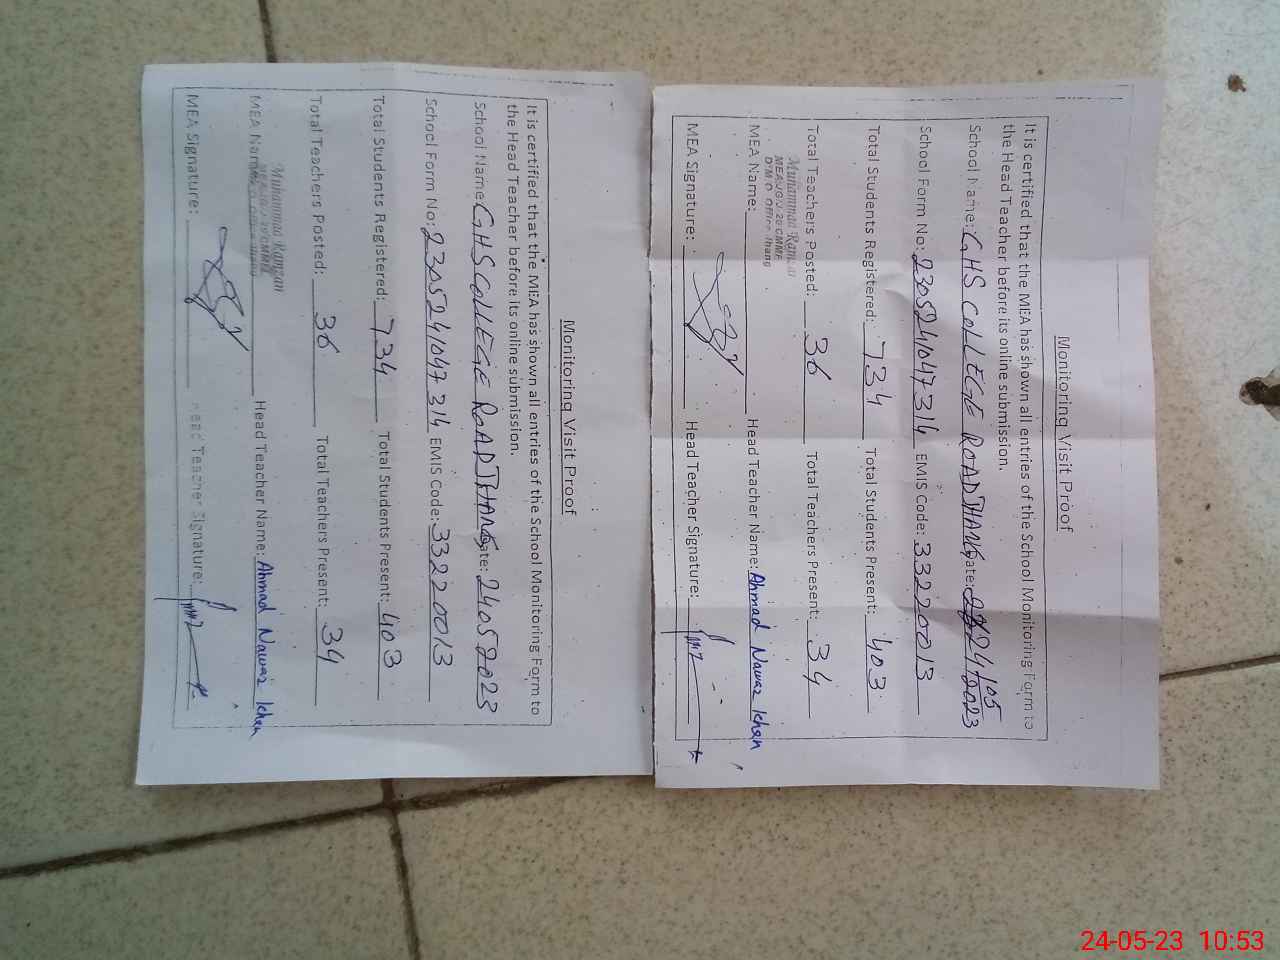 Monitoring Visit Proof
It is certified that the MEA has shown all entries of the School Monitoring Form to
the Head Teacher before its online submission.
School Name: GHS COLLEGE ROAD JHANG Date: 24/05/2023
School Form No: 2305241047314 EMIS Code: 33220013
Total Students Registered: 734 Total Students Present: 403
Total Teachers Posted: 36 Total Teachers Present: 34
Muhammad Ramzan
MEA-JGN 20 CMMF
DTM.O. Office Jhang
MEA Name: Head Teacher Name: Ahmad Nawaz Khan
MEA Signature: Head Teacher Signature:
Monitoring Visit Proof
It is certified that the MEA has shown all entries of the School Monitoring Form to
the Head Teacher before its online submission.
School Name: GHS COLLEGE ROAD JHANG Date: 24052023
School Form No: 2305241047314 EMIS Code: 33220013
Total Students Registered: 734 Total Students Present: 403
Total Teachers Posted: 36 Total Teachers Present: 34
Muhammad Ramzan
MEA Name: Head Teacher Name: Ahmad Nawaz Khan
MEA Signature: Head Teacher Signature:
24-05-23 10:53